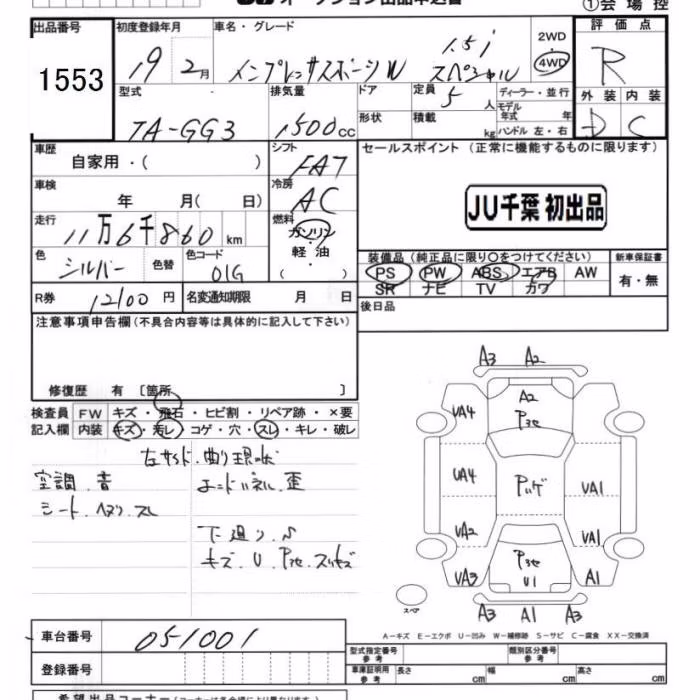 ①会場控
出品番号 初度登録年月 車名・グレード 評価点
1553 19 2月 インプレッサスポーツW 1.5i スペシャル 2WD 4WD R
型式 排気量 ドア 定員 5人 ディーラー・並行 外装 内装
TA-GG3 1500cc 形状 積載 kg モデル年式 年 ハンドル 左・右 D C
車歴 シフト セールスポイント (正常に機能するものに限ります)
自家用・( ) FAT
車検 冷房
年 月( 日) AC JU千葉 初出品
走行 燃料
11万6千860km ガソリン
軽油
・( ) 装備品 (純正品に限り○をつけてください) 新車保証書
色 色替 色コード PS PW ABS エアB AW 有・無
シルバー 01G SR ナビ TV カワ
R券 12100円 名変通知期限 月 日 後日品
注意事項申告欄 (不具合内容等は具体的に記入して下さい)
修復歴 有 [箇所 ]
検査員 FW キズ・飛石・ヒビ割・リペア跡・×要
記入欄 内装 キズ・汚レ・コゲ・穴・スレ・キレ・破レ
空調.音
シート.ヘタリ.スレ
下廻り.S
キズ.U.
A3 A2
A2
UA4
UA4 UA1
UA2 UA1
UA3 U1 A1
スペア
A3 A1 A3
A-キズ E-エクボ U-凹み W-補修跡 S-サビ C-腐食 XX-交換済
車台番号 051001
型式指定番号 参考 類別区分番号 参考
登録番号 車庫証明用 参考 長さ cm 幅 cm 高さ cm
希望出品コーナー